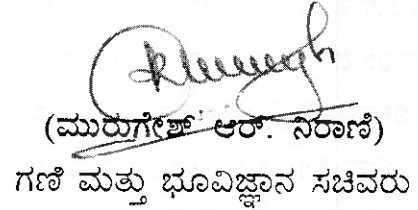 (ಮುರುಗೇಶ್ ಆರ್. ನಿರಾಣಿ)
ಗಣಿ ಮತ್ತು ಭೂವಿಜ್ಞಾನ ಸಚಿವರು